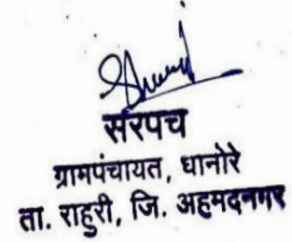 सरपंच
ग्रामपंचायत, धानोरे
ता. राहुरी, जि. अहमदनगर